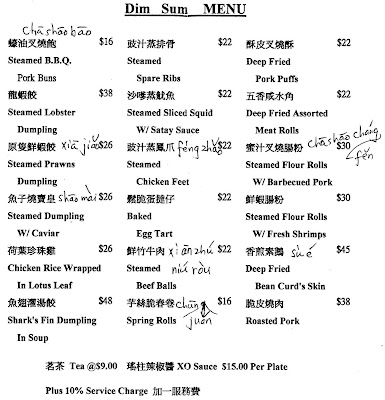 Dim Sum MENU
chā shāo bāo
蠔油叉燒飽 $16
Steamed B.B.Q.
Pork Buns
龍蝦餃 $38
Steamed Lobster
Dumpling
原隻鮮蝦餃 xiā jiǎo $26
Steamed Prawns
Dumpling
魚子燒賣皇 shāo mài $26
Steamed Dumpling
W/ Caviar
荷葉珍珠雞 $26
Chicken Rice Wrapped
In Lotus Leaf
魚翅灌湯餃 $48
Shark's Fin Dumpling
In Soup
豉汁蒸排骨 $22
Steamed
Spare Ribs
沙嗲蒸魷魚 $22
Steamed Sliced Squid
W/ Satay Sauce
豉汁蒸鳳爪 fèng zhǎo $22
Steamed
Chicken Feet
鬆脆蛋撻仔 $22
Baked
Egg Tart
鮮竹牛肉 xiān zhú $22
Steamed niú ròu
Beef Balls
芋絲脆春卷 chūn $16
Spring Rolls juǎn
酥皮叉燒酥 $22
Deep Fried
Pork Puffs
五香咸水角 $22
Deep Fried Assorted
Meat Rolls
蜜汁叉燒腸粉 chā shāo cháng $30
Steamed Flour Rolls fěn
W/ Barbecued Pork
鮮蝦腸粉 $30
Steamed Flour Rolls
W/ Fresh Shrimps
香煎素鵝 sù é $45
Deep Fried
Bean Curd's Skin
脆皮燒肉 $38
Roasted Pork
茗茶 Tea @$9.00 瑤柱辣椒醬 XO Sauce $15.00 Per Plate
Plus 10% Service Charge 加一服務費